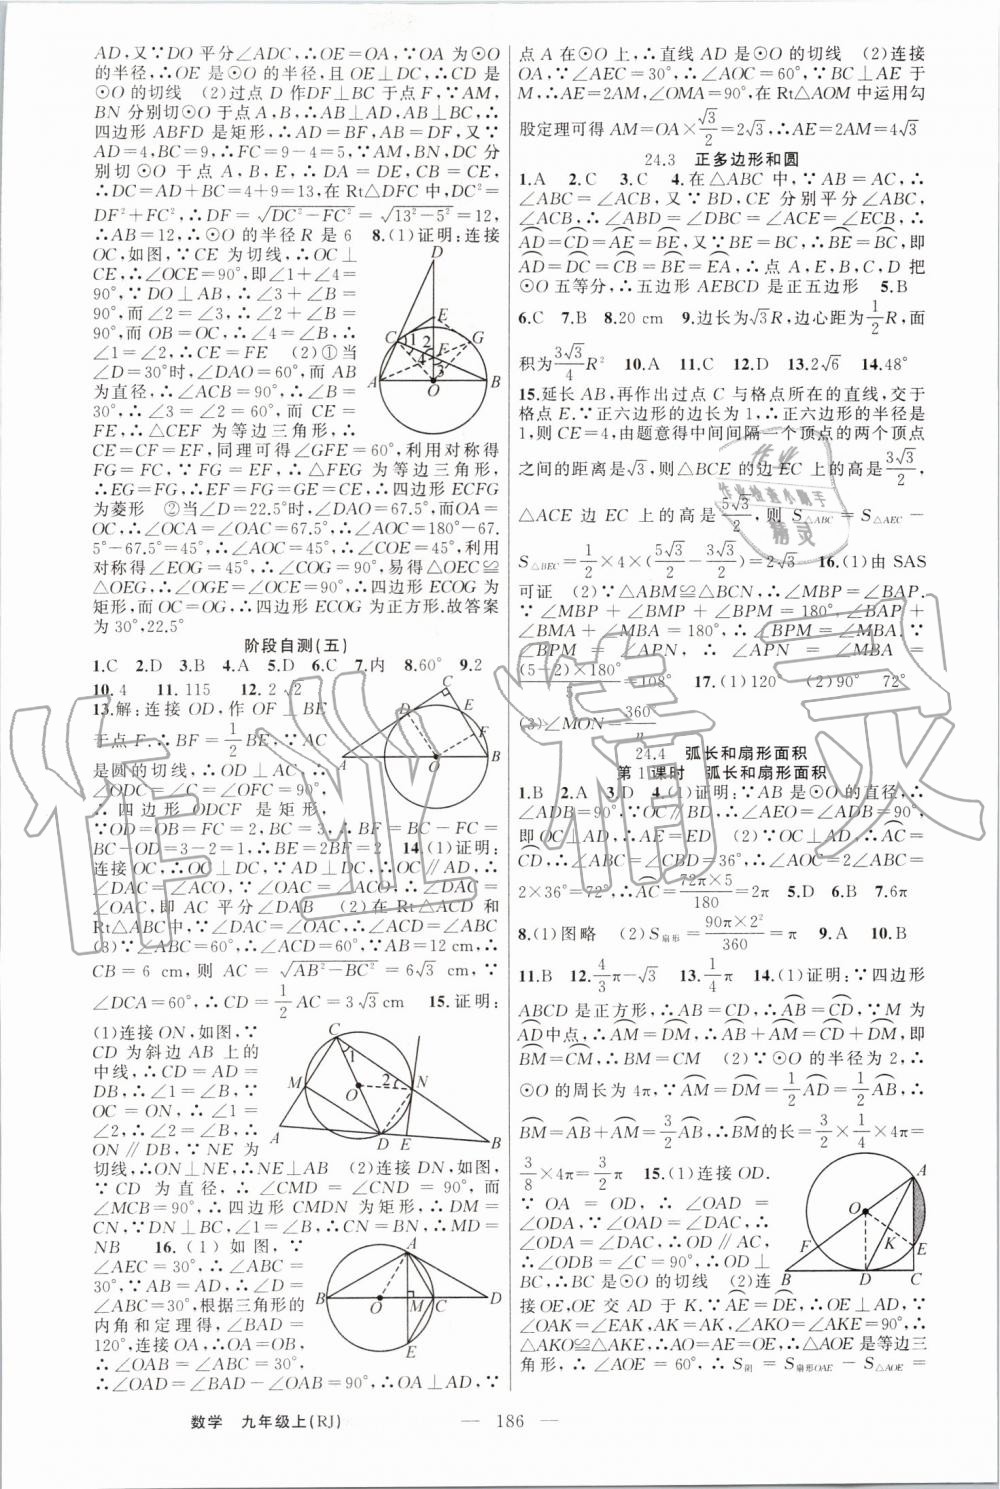 AD,又∵DO平分∠ADC,∴OE=OA,∵OA为⊙O
的半径,∴OE是⊙O的半径,且OE⊥DC,∴CD是
⊙O的切线 (2)过点D作DF⊥BC于点F,∵AM,
BN分别切⊙O于点A,B,∴AB⊥AD,AB⊥BC,∴
四边形ABFD是矩形,∴AD=BF,AB=DF,又∵
AD=4,BC=9,∴FC=9-4=5,∵AM,BN,DC分
别切⊙O于点A,B,E,∴DA=DE,CB=CE,
∴DC=AD+BC=4+9=13,在Rt△DFC中,DC²=
DF²+FC²,∴DF=√(DC²-FC²)=√(13²-5²)=12,
∴AB=12,∴⊙O的半径R是6 8.(1)证明:连接
OC,如图,∵CE为切线,∴OC⊥
CE,∴∠OCE=90°,即∠1+∠4=
90°,∵DO⊥AB,∴∠3+∠B=
90°,而∠2=∠3,∴∠2+∠B=
90°,而OB=OC,∴∠4=∠B,∴
∠1=∠2,∴CE=FE (2)①当
∠D=30°时,∠DAO=60°,而AB
为直径,∴∠ACB=90°,∴∠B=
30°,∴∠3=∠2=60°,而CE=
FE,∴△CEF为等边三角形,∴
CE=CF=EF,同理可得∠GFE=60°,利用对称得
FG=FC,∴FG=EF,∴△FEG为等边三角形,
∴EG=FG,∴EF=FG=GE=CE,∴四边形ECFG
为菱形 ②当∠D=22.5°时,∠DAO=67.5°,而OA=
OC,∴∠OCA=∠OAC=67.5°,∴∠AOC=180°-67.
5°-67.5°=45°,∴∠AOC=45°,∴∠COE=45°,利用
对称得∠EOG=45°,∴∠COG=90°,易得△OEC≌
△OEG,∴∠OGE=∠OCE=90°,∴四边形ECOG为
矩形,而OC=OG,∴四边形ECOG为正方形.故答案
为30°,22.5°
阶段自测(五)
1.C 2.D 3.B 4.A 5.D 6.C 7.内 8.60° 9.2
10.4 11.115 12.2√2
13.解:连接OD,作OF⊥BE
于点F,∴BF=1/2BE,∵AC
是圆的切线,∴OD⊥AC,∴
∠ODC=∠C=∠OFC=90°,
∴四边形ODCF是矩形,
∵OD=OB=FC=2,BC=3,∴BF=BC-FC=
BC-OD=3-2=1,∴BE=2BF=2 14.(1)证明:
连接OC,∴OC⊥CD,又∵AD⊥CD,∴OC∥AD,∴
∠DAC=∠ACO,∵∠OAC=∠ACO,∴∠DAC=
∠OAC,即AC平分∠DAB (2)在Rt△ACD和
Rt△ABC中,∵∠DAC=∠OAC,∴∠ACD=∠ABC
(3)∵∠ABC=60°,∴∠CAB=30°,∵AB=12 cm,∴
CB=6 cm,则AC=√(AB²-BC²)=6√3 cm,∵
∠DCA=60°,∴CD=1/2AC=3√3 cm 15.证明:
(1)连接ON,如图,∵
CD为斜边AB上的
中线,∴CD=AD=
DB,∴∠1=∠B,∵
OC=ON,∴∠1=
∠2,∴∠2=∠B,∴
ON∥DB,∵NE为
切线,∴ON⊥NE,∴NE⊥AB (2)连接DN,如图,
∵CD为直径,∴∠CMD=∠CND=90°,而
∠MCB=90°,∴四边形CMDN为矩形,∴DM=
CN,∵DN⊥BC,∠1=∠B,∴CN=BN,∴MD=
NB 16.(1)如图,∵
∠AEC=30°,∴∠ABC=
30°,∵AB=AD,∴∠D=
∠ABC=30°,根据三角形的
内角和定理得,∠BAD=
120°,连接OA,∴OA=OB,
∴∠OAB=∠ABC=30°,
∴∠OAD=∠BAD-∠OAB=90°,∴OA⊥AD,∵
点A在⊙O上,∴直线AD是⊙O的切线 (2)连接
OA,∵∠AEC=30°,∴∠AOC=60°,∵BC⊥AE于
M,∴AE=2AM,∠OMA=90°,在Rt△AOM中运用勾
股定理可得AM=OA×√3/2=2√3,∴AE=2AM=4√3
24.3 正多边形和圆
1.A 2.C 3.C 4.在△ABC中,∵AB=AC,∴
∠ABC=∠ACB,又∵BD,CE分别平分∠ABC,
∠ACB,∴∠ABD=∠DBC=∠ACE=∠ECB,∴
A͡D=C͡D=A͡E=B͡E,又∵BD=BC,∴B͡E=B͡C,即
A͡D=C͡D=B͡C=B͡E=E͡A,∴点A,E,B,C,D把
⊙O五等分,∴五边形AEBCD是正五边形 5.B
6.C 7.B 8.20 cm 9.边长为√3R,边心距为1/2R,面
积为3√3/4R² 10.A 11.C 12.D 13.2√6 14.48°
15.延长AB,再作出过点C与格点所在的直线,交于
格点E.∵正六边形的边长为1,∴正六边形的半径是
1,则CE=4,由题意得中间间隔一个顶点的两个顶点
之间的距离是√3,则△BCE的边EC上的高是3√3/2,
△ACE边EC上的高是5√3/2,则S△ABC=S△AEC-
S△BEC=1/2×4×(5√3/2-3√3/2)=2√3 16.(1)由SAS
可证 (2)∵△ABM≌△BCN,∴∠MBP=∠BAP.
∵∠MBP+∠BMP+∠BPM=180°,∠BAP+
∠BMA+∠MBA=180°,∴∠BPM=∠MBA.∵
∠BPM=∠APN,∴∠APN=∠MBA=
(5-2)×180°/5=108° 17.(1)120° (2)90° 72°
(3)∠MON=360°/n
24.4 弧长和扇形面积
第1课时 弧长和扇形面积
1.B 2.A 3.D 4.(1)证明:∵AB是⊙O的直径,∴
∠ADB=90°,∵OC∥BD,∴∠AEO=∠ADB=90°,
即OC⊥AD,∴AE=ED (2)∵OC⊥AD,∴A͡C=
C͡D,∴∠ABC=∠CBD=36°,∴∠AOC=2∠ABC=
2×36°=72°,∴A͡C=72π×5/180=2π 5.D 6.B 7.6π
8.(1)图略 (2)S扇形=90π×2²/360=π 9.A 10.B
11.B 12.4/3π-√3 13.1/4π 14.(1)证明:∵四边形
ABCD是正方形,∴AB=CD,∴A͡B=C͡D,∵M为
A͡D中点,∴A͡M=D͡M,∴A͡B+A͡M=C͡D+D͡M,即
B͡M=C͡M,∴BM=CM (2)∵⊙O的半径为2,∴
⊙O的周长为4π,∵A͡M=D͡M=1/2A͡D=1/2A͡B,∴
B͡M=A͡B+A͡M=3/2A͡B,∴B͡M的长=3/2×1/4×4π=
3/8×4π=3/2π 15.(1)连接OD.
∵OA=OD,∴∠OAD=
∠ODA,∵∠OAD=∠DAC,
∴∠ODA=∠DAC,∴OD∥AC,
∴∠ODB=∠C=90°,∴OD⊥
BC,∴BC是⊙O的切线 (2)连
接OE,OE交AD于K.∵A͡E=D͡E,∴OE⊥AD,∵
∠OAK=∠EAK,AK=AK,∠AKO=∠AKE=90°,
∴△AKO≌△AKE,∴AO=AE=OE,∴△AOE是等边三
角形,∴∠AOE=60°,∴S阴=S扇形OAE-S△AOE=
数学 九年级上(RJ)
— 186 —